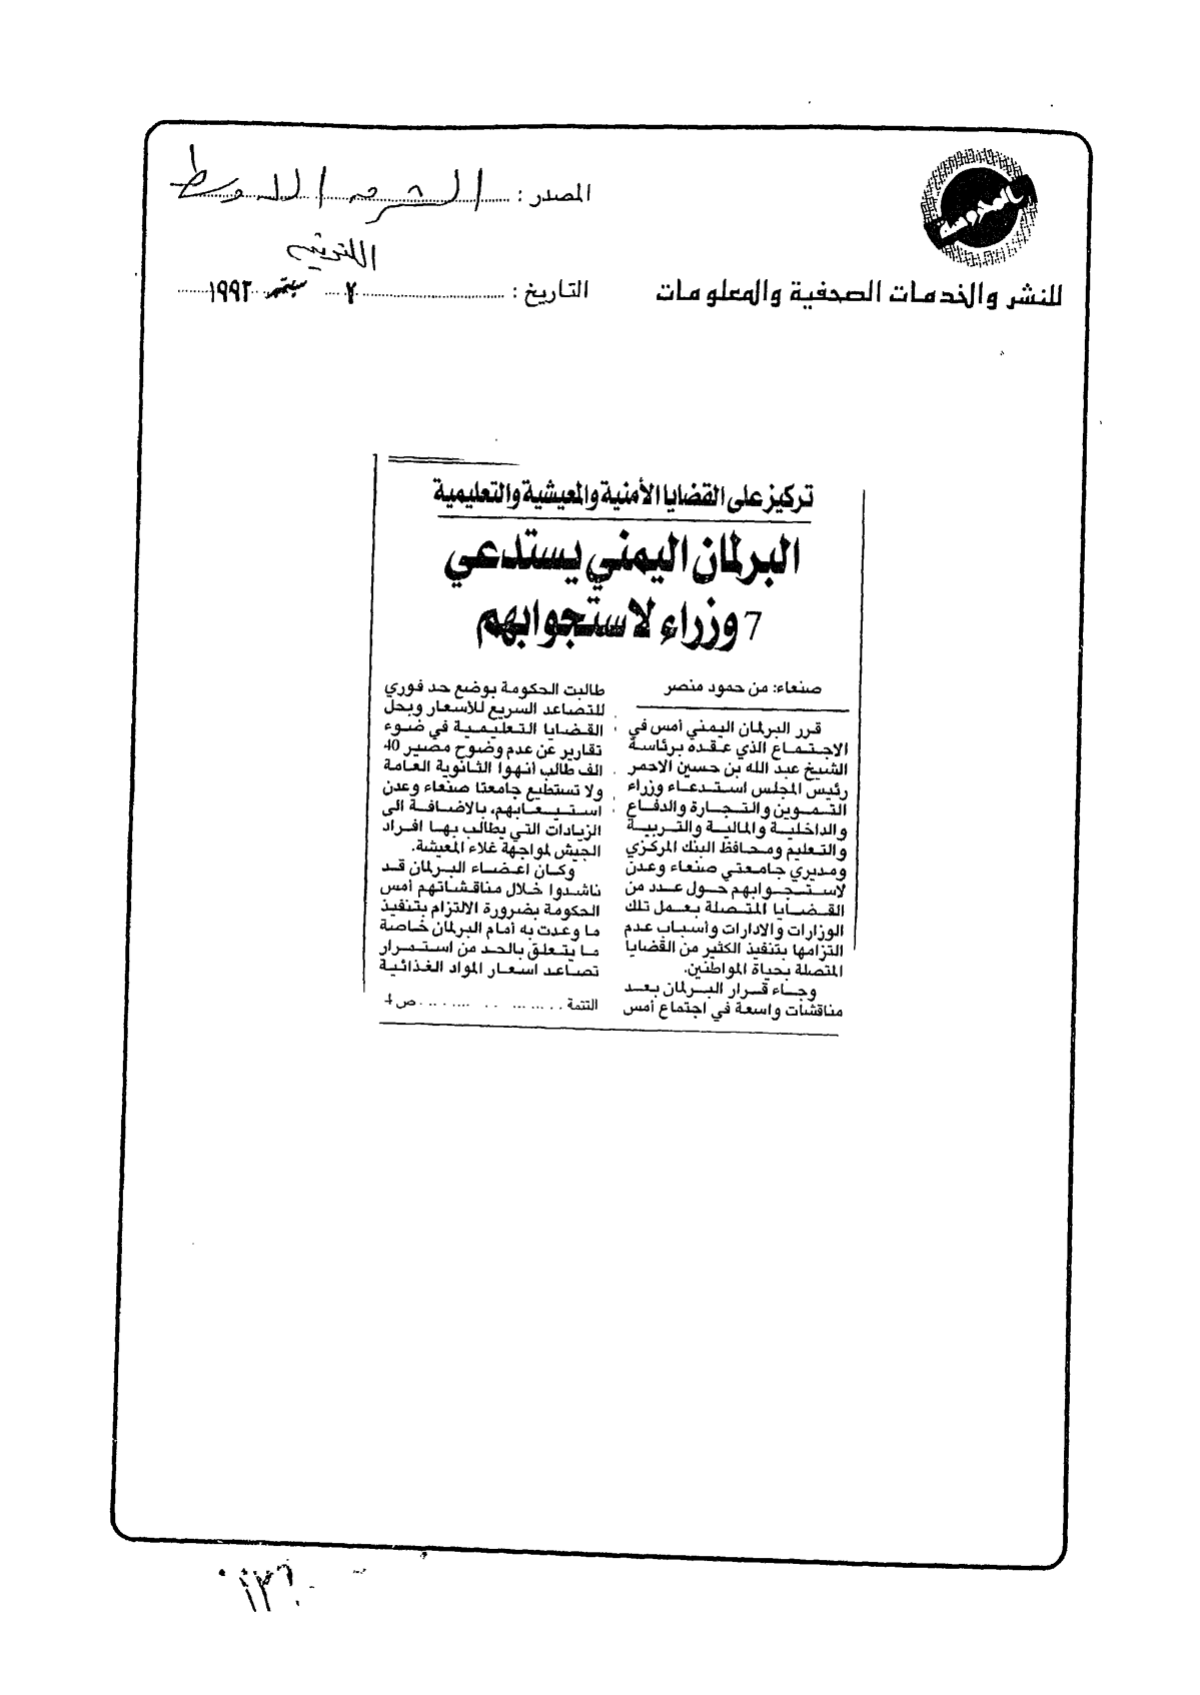 المحروسة
للنشر والخدمات الصحفية والمعلومات
المصدر : الشرق الاوسط
اللندنية
التاريخ : سبتمبر
تركيز على القضايا الأمنية والمعيشية والتعليمية
البرلمان اليمني يستدعي
7 وزراء لاستجوابهم
صنعاء: من حمود منصر
قرر البرلمان اليمني أمس في
الاجتماع الذي عقده برئاسة
الشيخ عبد الله بن حسين الاحمر
رئيس المجلس استدعاء وزراء
التموين والتجارة والدفاع
والداخلية والمالية والتربية
والتعليم ومحافظ البنك المركزي
ومديري جامعتي صنعاء وعدن
لاستجوابهم حول عدد من
القضايا المتصلة بعمل تلك
الوزارات والادارات وأسباب عدم
التزامها بتنفيذ الكثير من القضايا
المتصلة بحياة المواطنين.
وجاء قرار البرلمان بعد
مناقشات واسعة في اجتماع أمس
طالبت الحكومة بوضع حد فوري
للتصاعد السريع للأسعار وبحل
القضايا التعليمية في ضوء
تقارير عن عدم وضوح مصير 40
الف طالب أنهوا الثانوية العامة
ولا تستطيع جامعتا صنعاء وعدن
استيعابهم، بالاضافة الى
الزيادات التي يطالب بها افراد
الجيش لمواجهة غلاء المعيشة.
وكان اعضاء البرلمان قد
ناشدوا خلال مناقشاتهم أمس
الحكومة بضرورة الالتزام بتنفيذ
ما وعدت به أمام البرلمان خاصة
ما يتعلق بالحد من استمرار
تصاعد اسعار المواد الغذائية
التتمة ص 4